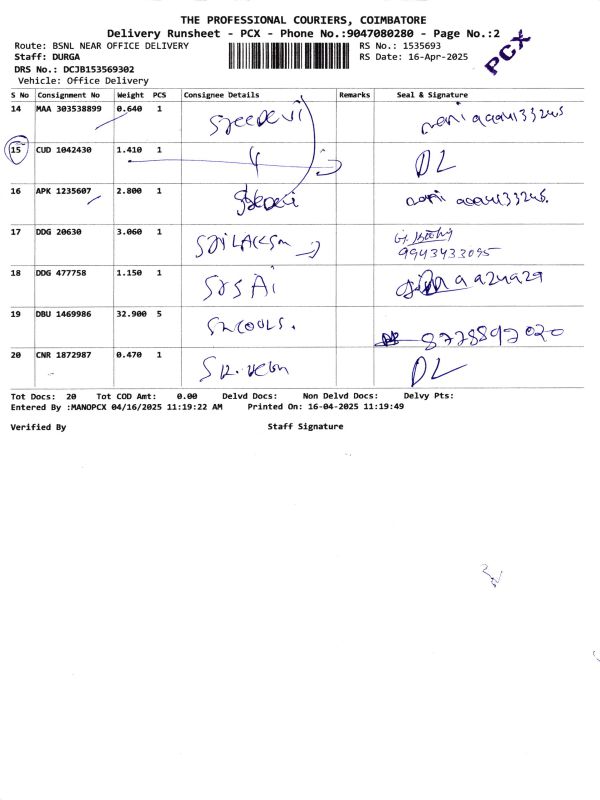 THE PROFESSIONAL COURIERS, COIMBATORE
Delivery Runsheet - PCX - Phone No.:9047080280 - Page No.:2
Route: BSNL NEAR OFFICE DELIVERY RS No.: 1535693
Staff: DURGA RS Date: 16-Apr-2025
PCX
DRS No.: DCJB153569302
Vehicle: Office Delivery
S No Consignment No Weight PCS Consignee Details Remarks Seal & Signature
14 MAA 303538899 0.640 1
15 CUD 1042430 1.410 1 DL
16 APK 1235607 2.800 1
17 DDG 20630 3.060 1
9943433095
18 DDG 477758 1.150 1
19 DBU 1469986 32.900 5 8778892020
20 CNR 1872987 0.470 1 DL
Tot Docs: 20 Tot COD Amt: 0.00 Delvd Docs: Non Delvd Docs: Delvy Pts:
Entered By :MANOPCX 04/16/2025 11:19:22 AM Printed On: 16-04-2025 11:19:49
Verified By Staff Signature